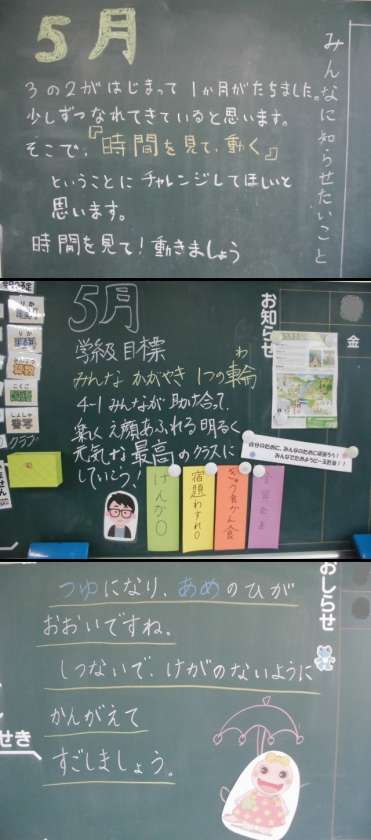 5月
3の2がはじまって1か月がたちました。
少しずつなれてきていると思います。
そこで、『時間を見て、動く』
ということにチャレンジしてほしいと
思います。
時間を見て!動きましょう
みんなに知らせたいこと
5月
学級目標
みんなかがやき1つの輪
わ
4-1みんなが助け合って、
楽しくえ顔あふれる明るく
元気な最高のクラスに
していこう!
お知らせ
金
自分のために、みんなのためにがんばろう!
みんなでためよう
クラブ
けんか0
宿題わすれ0
つゆになり、あめのひが
おおいですね。
しつないで、けがのないように
かんがえて
すごしましょう。
おしらせ
せき